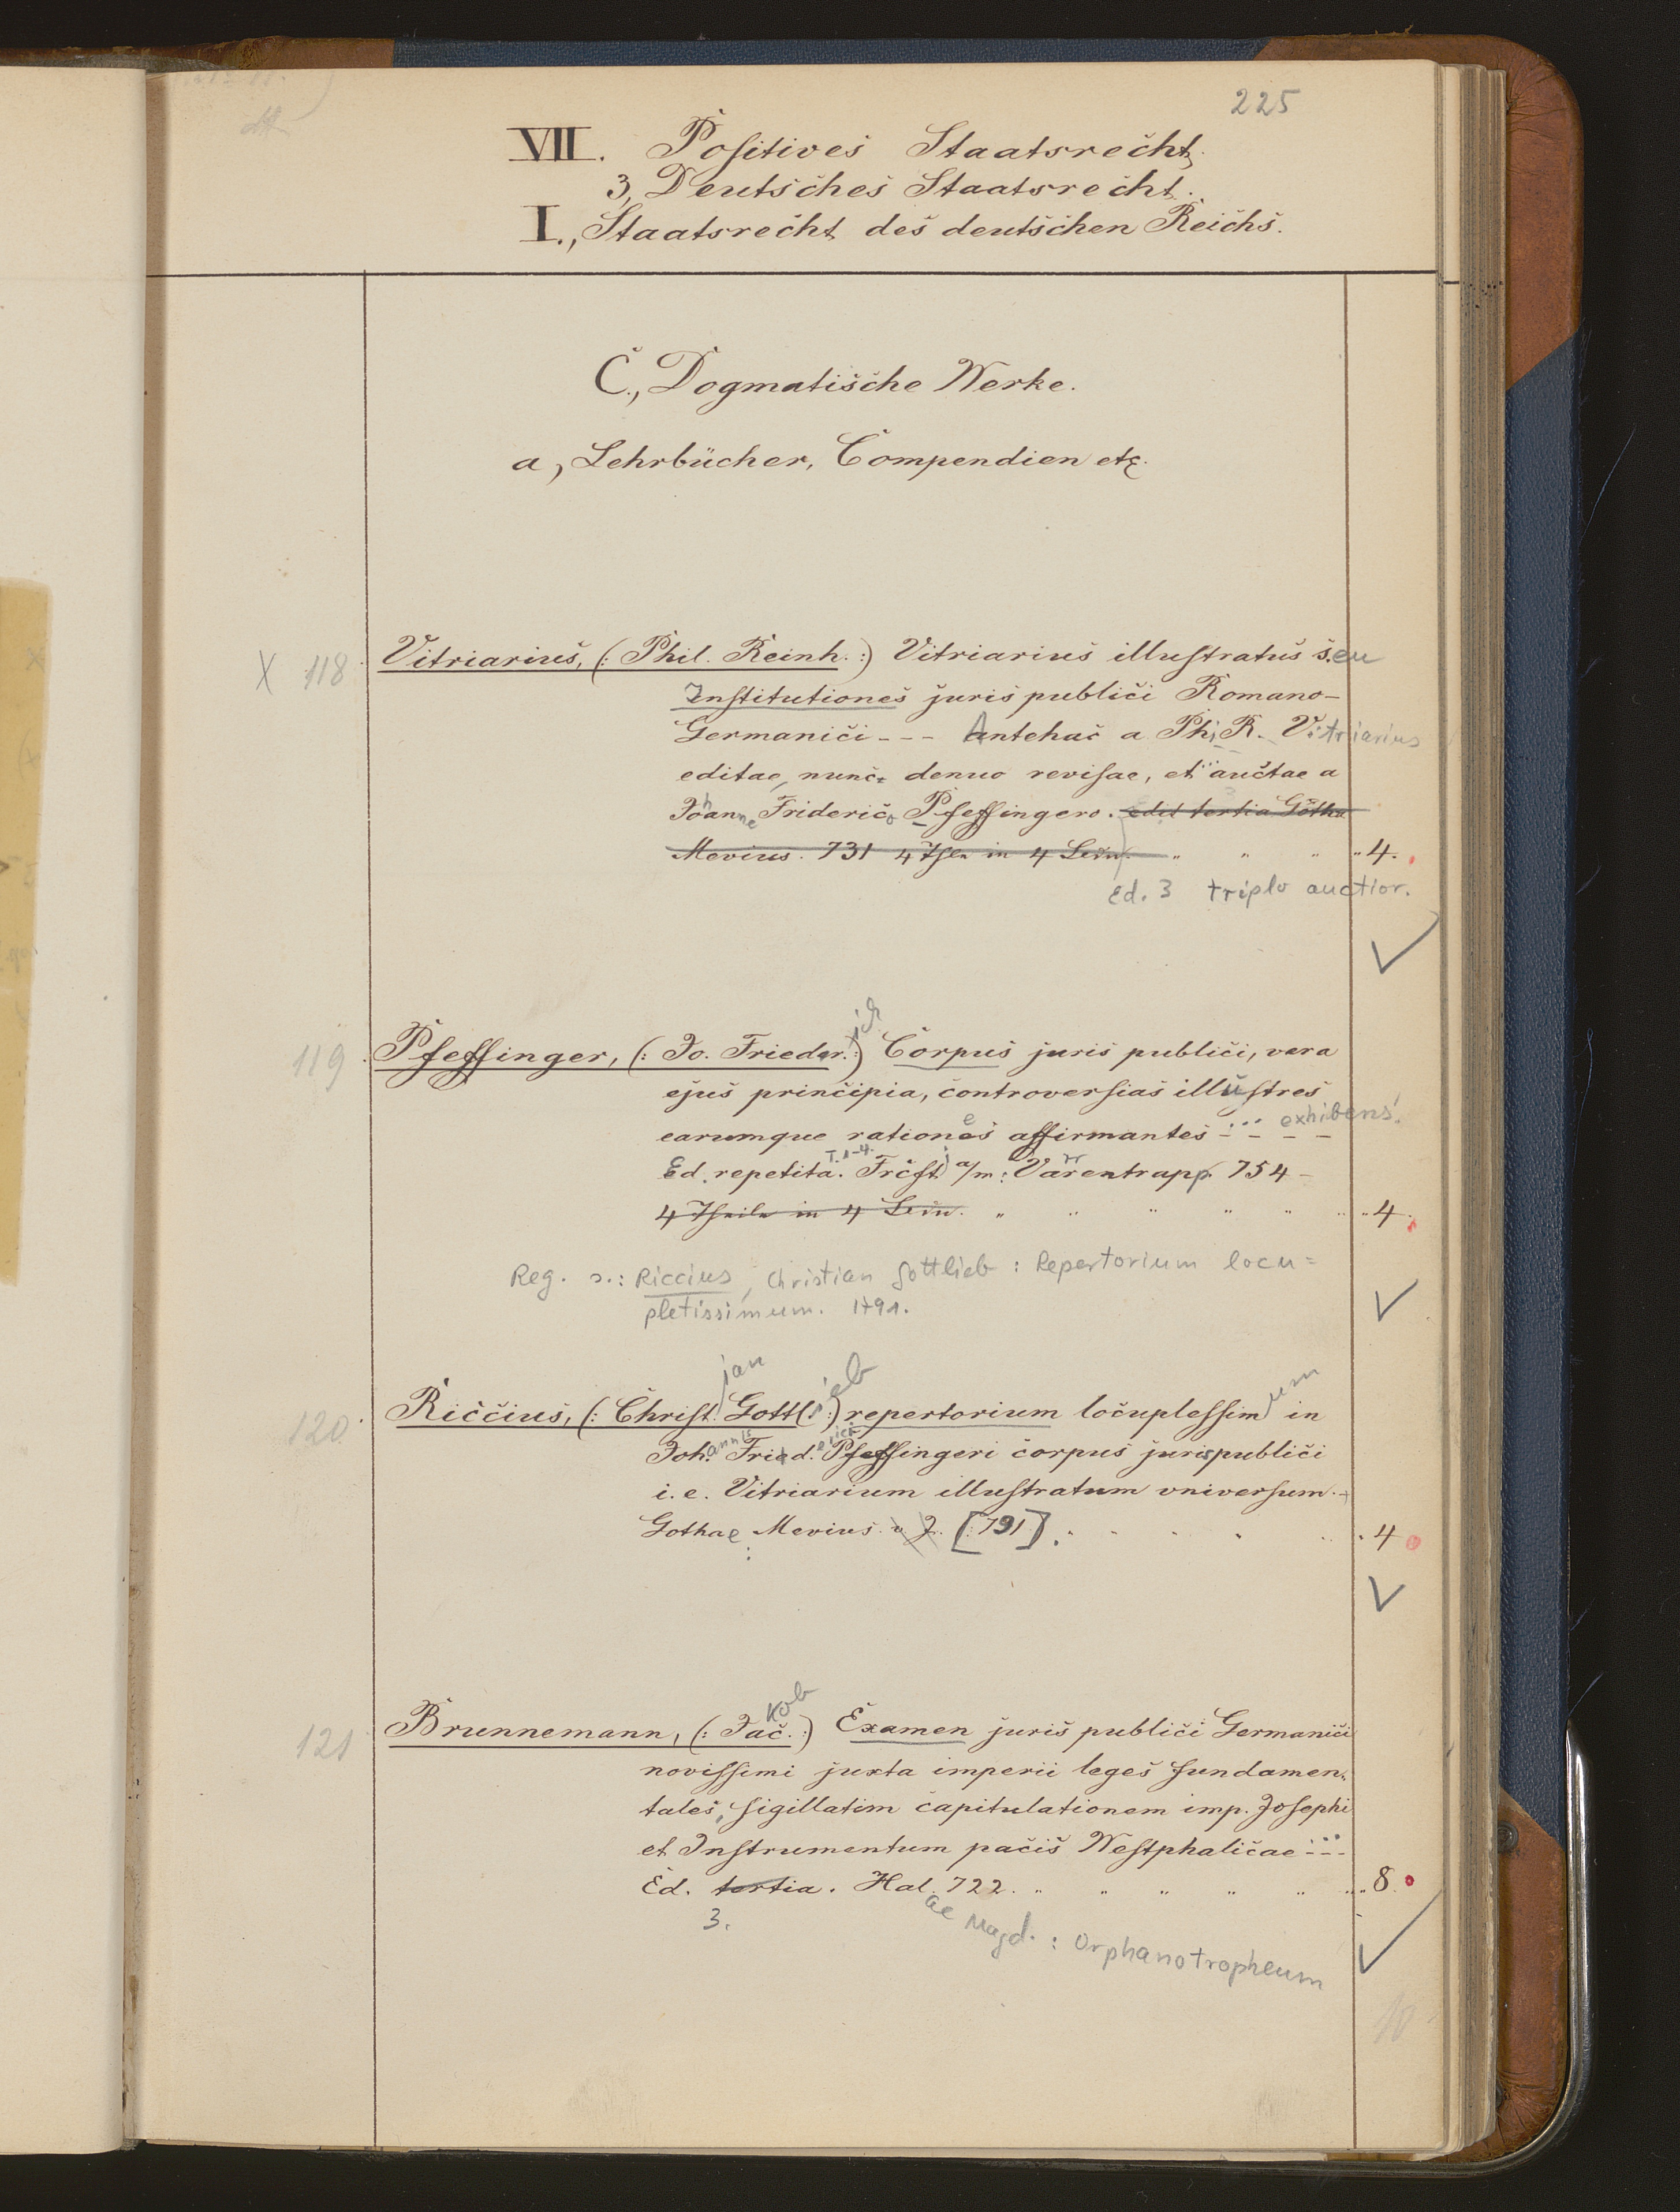 225
VII. Positives Staatsrecht.
3, Deutsches Staatsrecht.
I., Staatsrecht des deutschen Reichs.
C., Dogmatische Werke.
a, Lehrbücher, Compendien etc.
X 118. Vitriarius, (: Phil. Reinh. :) Vitriarius illustratus s.eu
Institutiones juris publici Romano-
Germanici - - - Antehac a Ph. R. Vitriarius
editae, nunc denuo revisae, et auctae a
Johanne Friderico Pfeffingero. edit tertia Gotha
Mevius. 731 4 Thle in 4 Bdn. " " " " 4.
Ed. 3 triplo auctior.
119. Pfeffinger, (: Jo. Friedr. :) ich Corpus juris publici, vera
ejus principia, controversias illustres
earumque rationes affirmantes - - - exhibens.
Ed. repetita. T. 1-4. Frcft a/m: Varrentrapp 754 -
4 Theile in 4 Bdn. " " " " " " 4.
Reg. s.: Riccius, Christian Gottlieb: Repertorium locu=
pletissimum. 1791.
120. Riccius, (: Christian Gottlieb :) repertorium locuplessimum in
Johannis Friderici Pfeffingeri corpus juris publici
i. e. Vitriarium illustratum vniversum. -
Gothae: Mevius o J. [791]. 4
121 Brunnemann, (: Jac. :) kob Examen juris publici Germanici
novissimi juxta imperii leges fundamen-
tales, sigillatim capitulationem imp. Josephi
et Instrumentum pacis Westphalicae - - -
Ed. tertia. Hal. 722. " " " " " " 8.
3. ae Magd.: Orphanotropheum